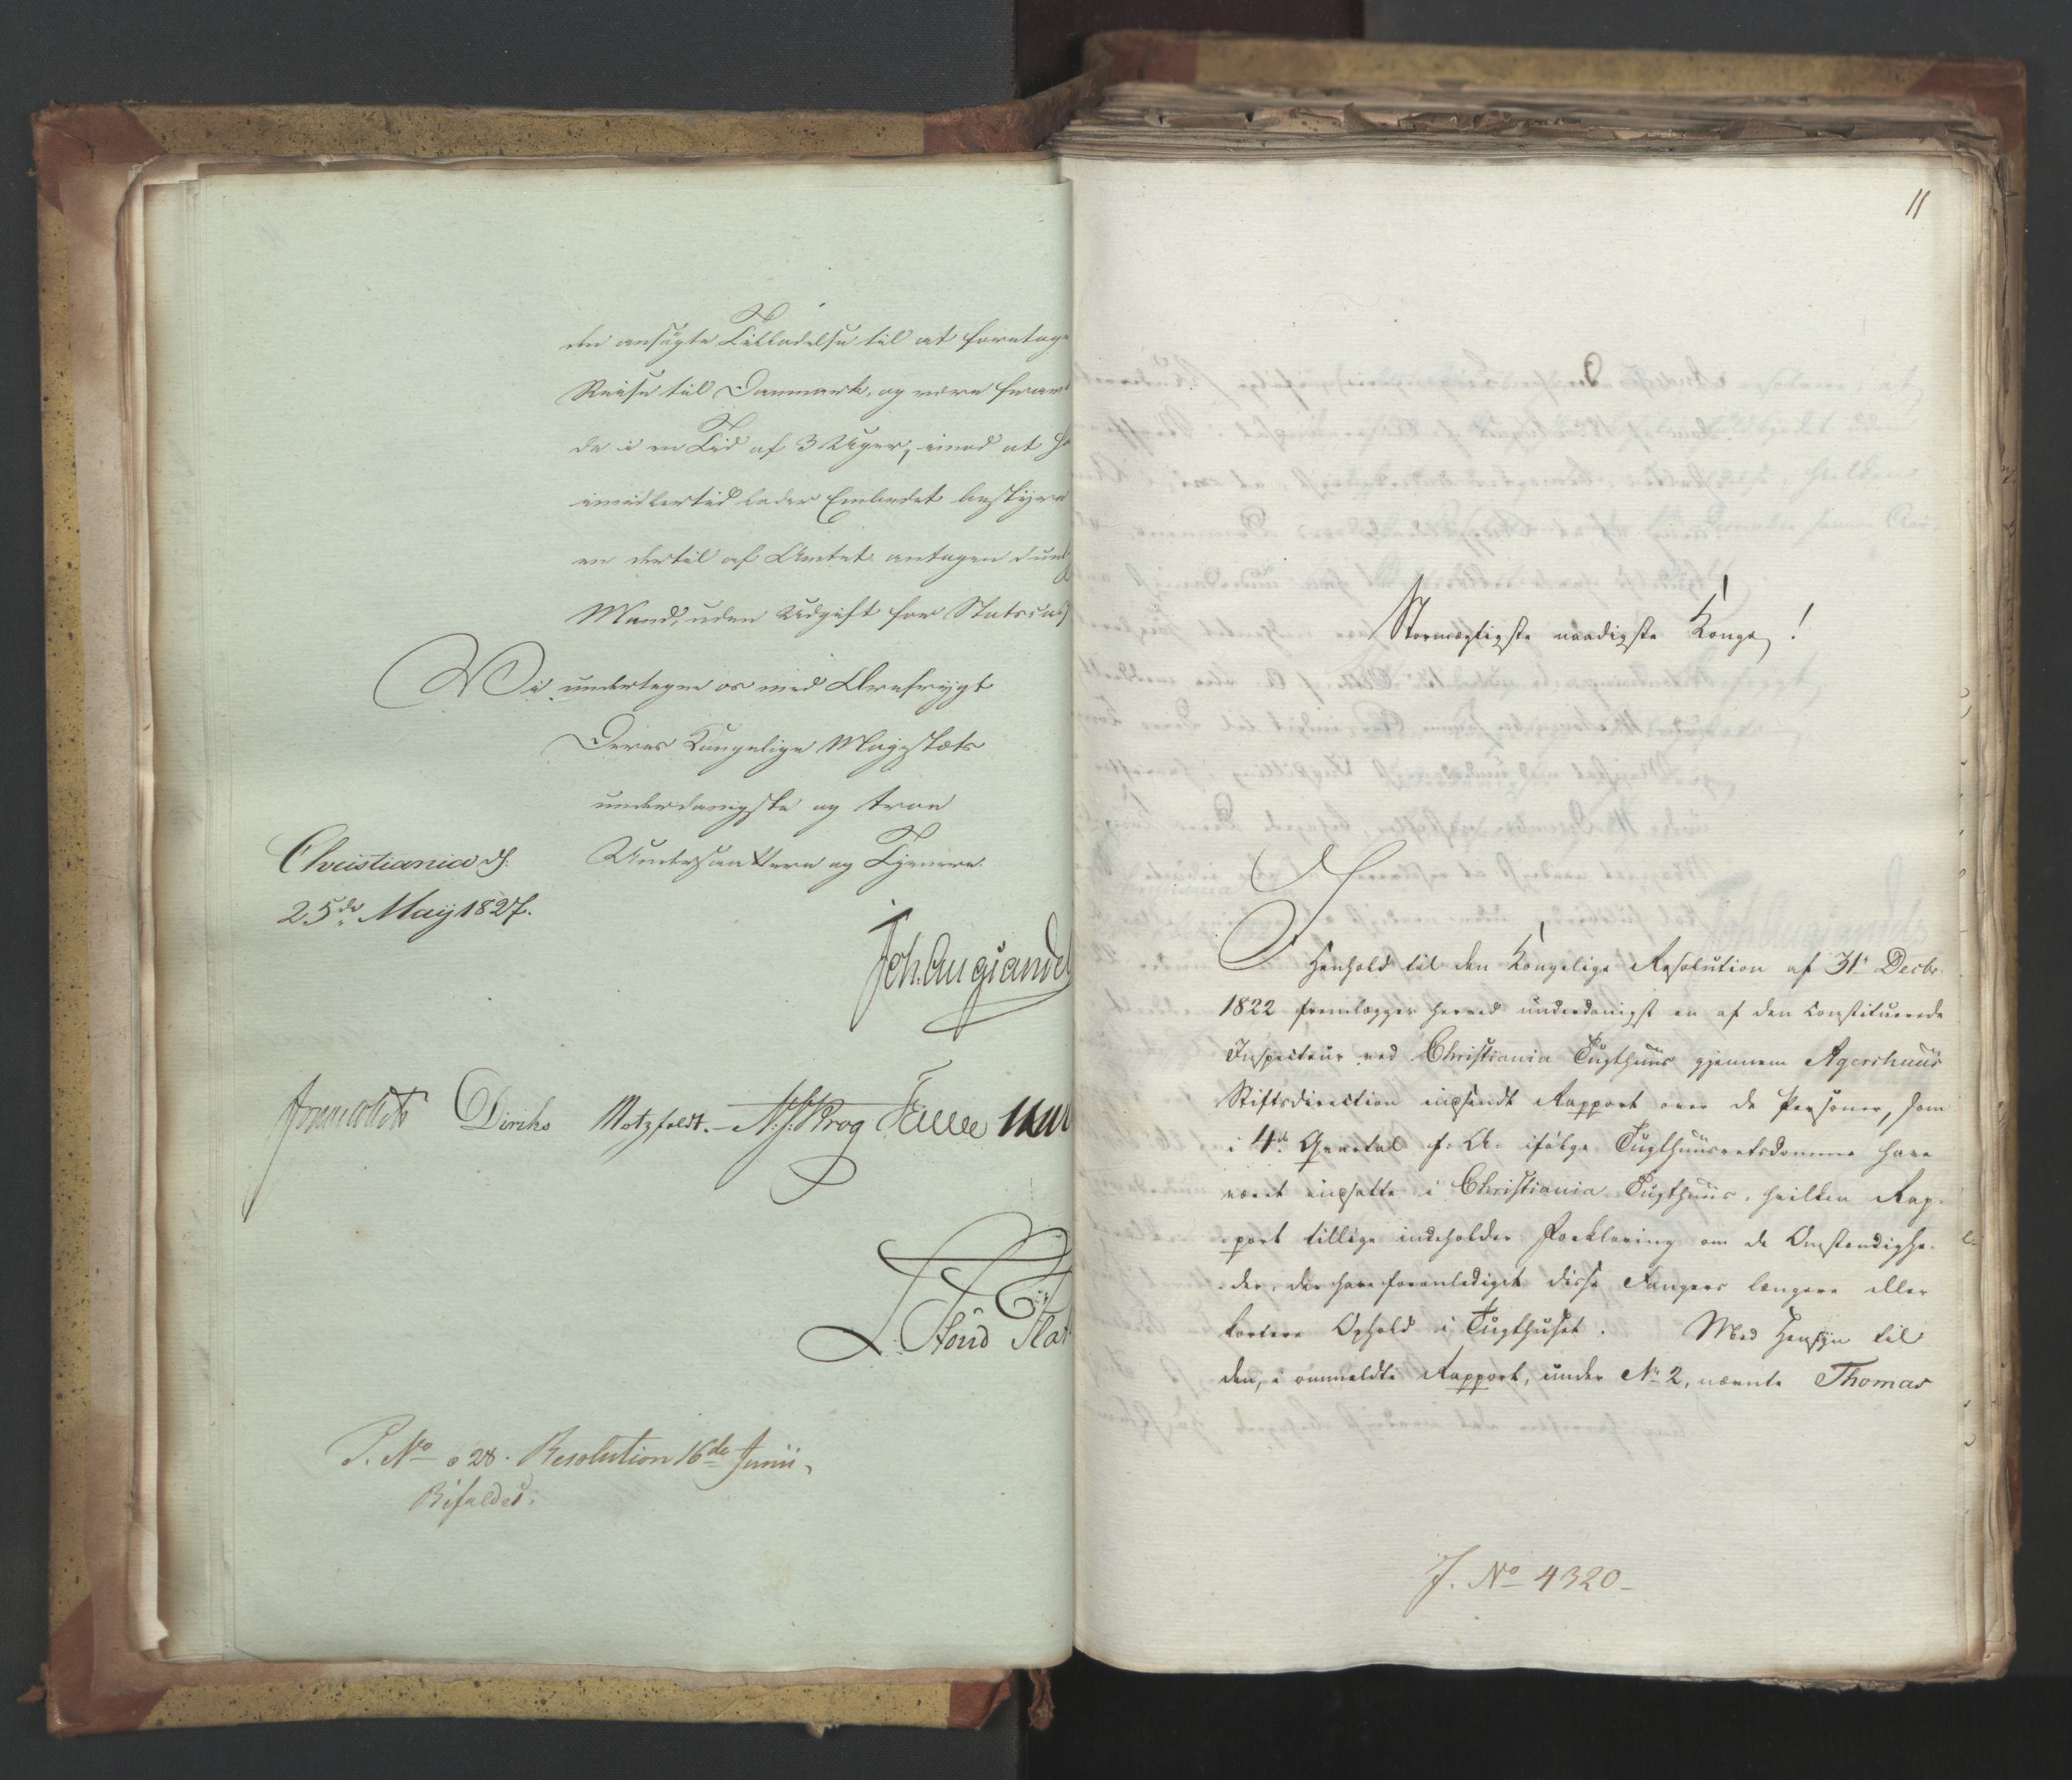 den ansøgte Tilladelse til at foretage
Reise til Danmark, og være fravæ
de i en Tid af 3 Uger, imod at h
imidlertid lader Embedet bestyre
en dertil af Amtet antagen due
Mand, uden Udgift for Statscas
Vi undertegne os med Ærefrygt
Deres Kongelige Majestæts
underdanigste og troe
Undersaattere og Tjenere.
Christiania d.
25de May 1827.
Joh. Aug. Sandel
Diriks Motzfeldt. N. J. Krog
P. No 628. Resolution 16de Junii,
Bifaldes.
11
Stormægtigste naadigste Konge!
I Henhold til den Kongelige Resolution af 31te Decbr.
1822 fremlægges herved underdanigst en af den constituerede
Inspecteur ved Christiania Tugthuus gjennem Agershuus
Stiftsdirection indsendt Rapport over de Personer, som
i 4de Qvartal f. A. ifølge Tugthuusretsdomme have
været indsatte i Christiania Tugthuus, hvilken Rap-
port tillige indeholder Forklaring om de Omstændighe-
der, der have foranlediget disse Fangers længere eller
kortere Ophold i Tugthuset. Med Hensyn til
den, i ommeldte Rapport, under No 2, nævnte Thomas
J. No 4320